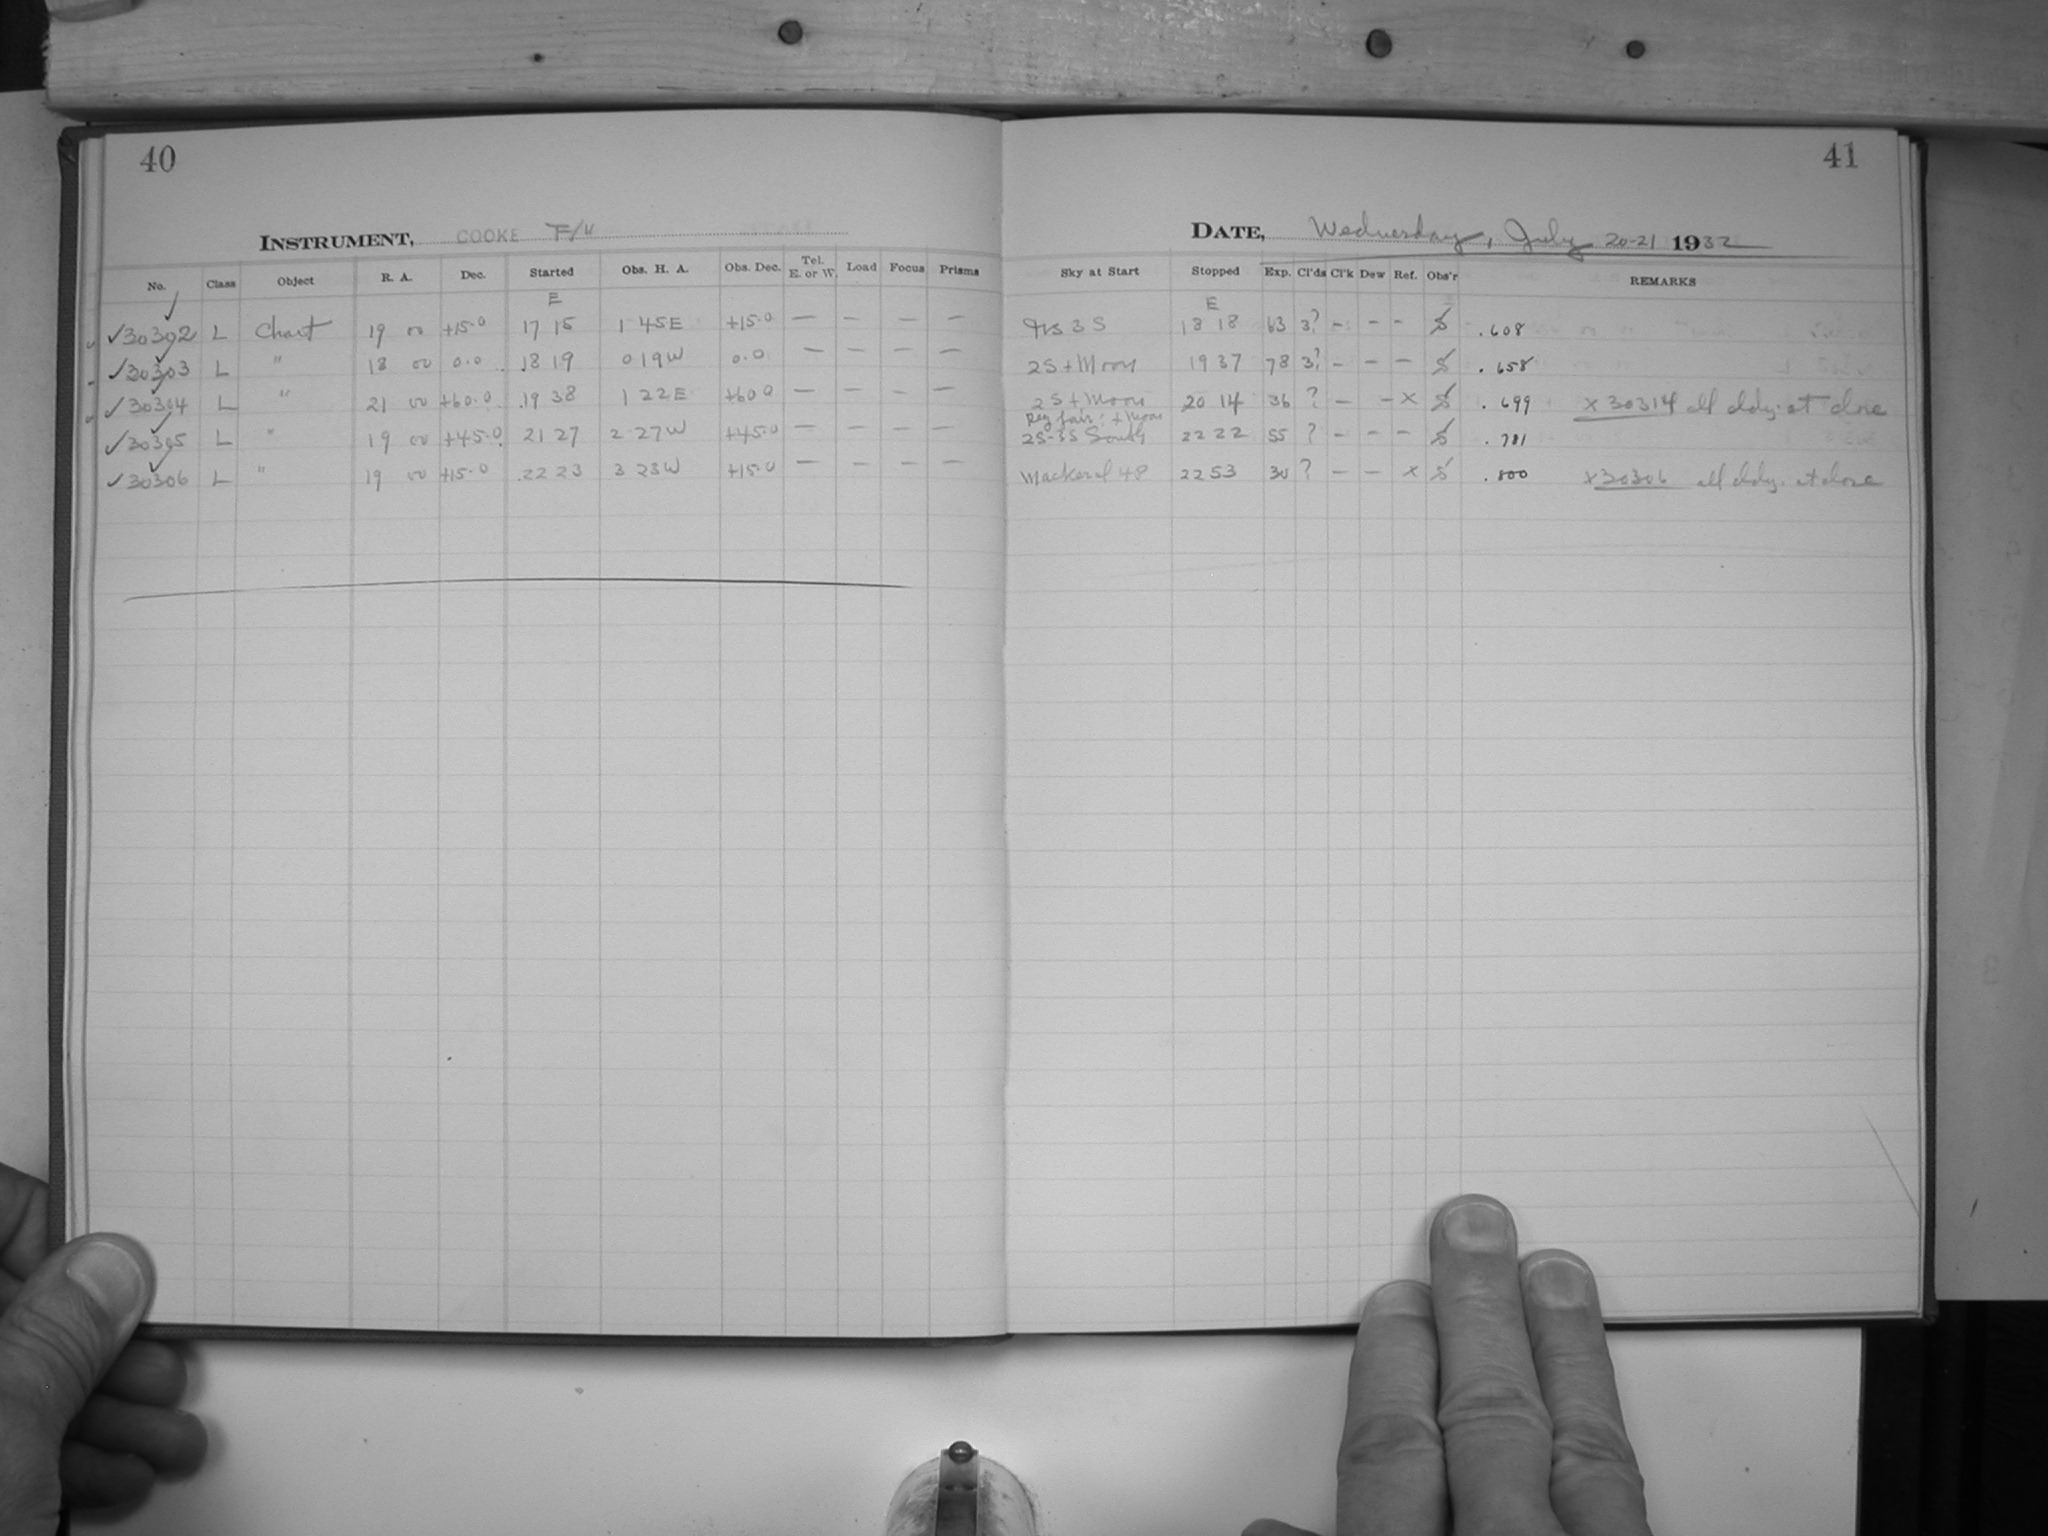 40
INSTRUMENT, COOKE
No. Class Object R. A. Dec. Started Obs. H. A. Obs. Dec. Tel. E. or W. Load Focus Prisms
E
✓30302 L Chart 19 00 +15.0 17 15 1 45E +15.0 — — — —
✓30303 L " 18 00 0.0 18 19 0 19W 0.0 — — — —
✓30304 L " 21 00 +60.0 19 38 1 22E +60 0 — — — —
✓30305 L " 19 00 +45.0 21 27 2 27W +45.0 — — — —
✓30306 L " 19 00 +15.0 22 23 3 23W +15.0 — — — —
41
DATE, Wednesday, July 20-21 1932
Sky at Start Stopped Exp. Cl'ds Cl'k Dew Ref. Obs'r REMARKS
E
3 S 18 18 63 3? – – – .608
2S + Moon 19 37 78 3? – – – .658
2S + Moon 20 14 36 ? – – x .699 x 30314 all cldy. at close
Reg fair: + Moon
2S-3S South 22 22 55 ? – – – .781
Mackerel 22 53 30 ? – – x .800 x 30306 all cldy. at close